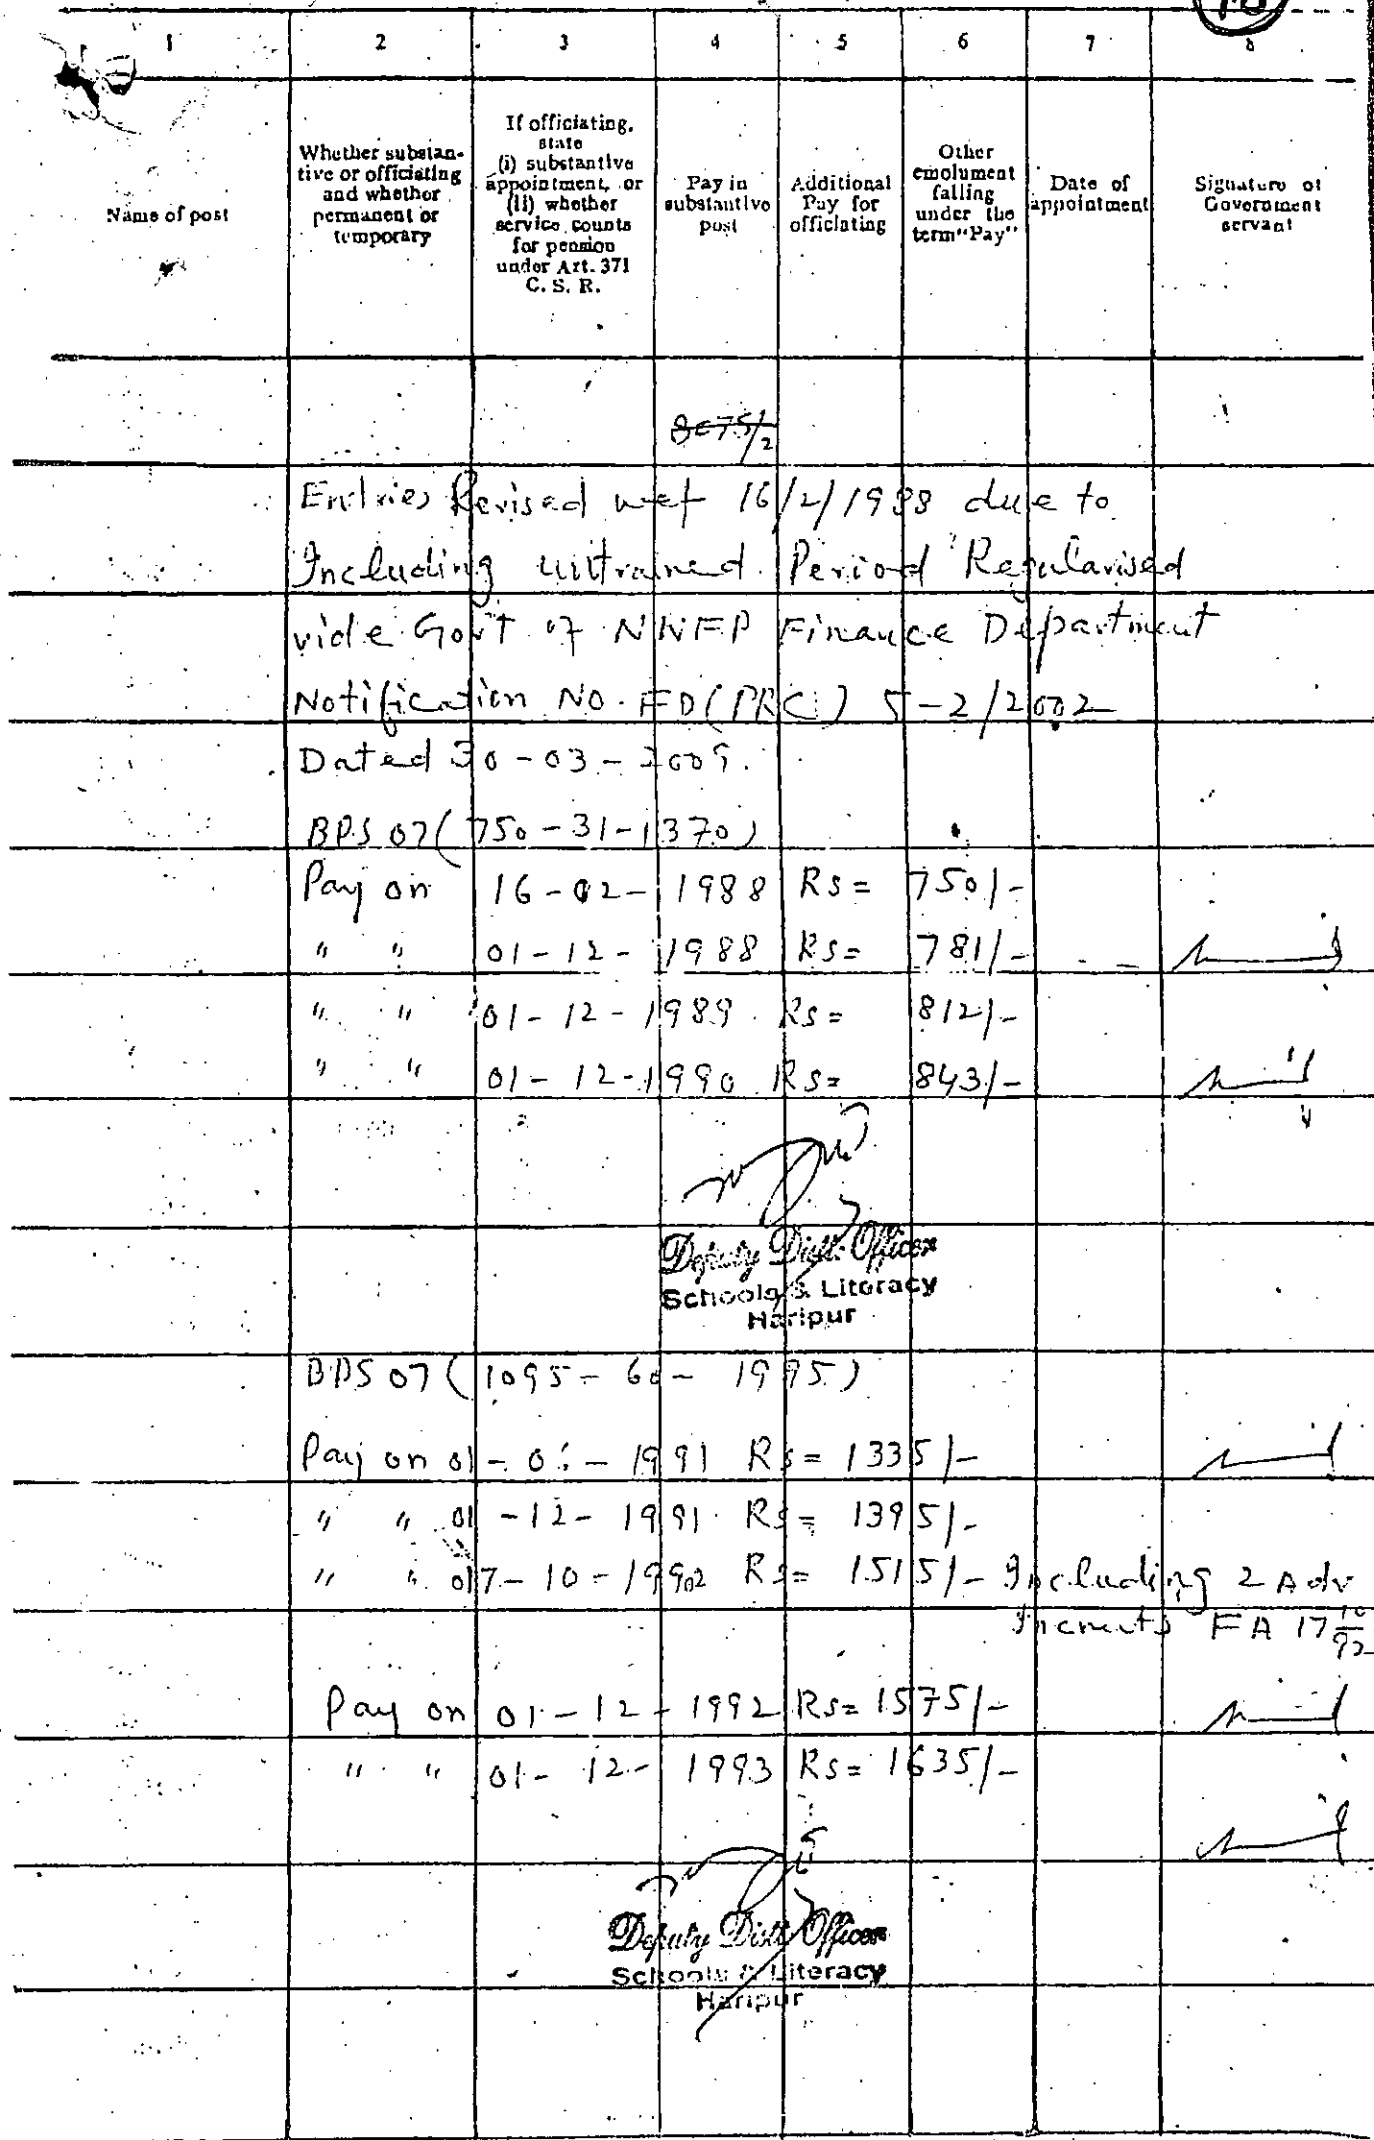 1 2 3 4 5 6 7 8
Name of post
Whether substan-
tive or officiating
and whether
permanent or
temporary
If officiating,
state
(i) substantive
appointment, or
(ii) whether
service counts
for pension
under Art. 371
C. S. R.
Pay in
substantive
post
Additional
Pay for
officiating
Other
emolument
falling
under the
term "Pay"
Date of
appointment
Signature of
Government
servant
Entries Revised wef 16/2/1988 due to
Including untrained Period Regularised
vide Govt of NWFP Finance Department
Notification No. FD(PRC) 5-2/2002
Dated 30-03-2005.
BPS 07 (750-31-1370)
Pay on 16-02-1988 Rs= 750/-
" " 01-12-1988 Rs= 781/-
" " 01-12-1989 Rs= 812/-
" " 01-12-1990 Rs= 843/-
Deputy Distt: Officer
Schools & Literacy
Haripur
BPS 07 (1095-60-1995)
Pay on 01- -1991 Rs= 1335/-
" " 01-12-1991 Rs= 1395/-
" " -10-1992 Rs= 1515/- Including 2 Adv
FA 17 10/92
Pay on 01-12-1992 Rs= 1575/-
" " 01-12-1993 Rs= 1635/-
Deputy Distt Officer
Schools & Literacy
Haripur